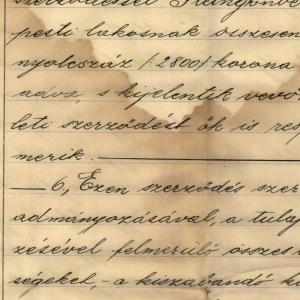 szerződést
pesti lakosnak összesen
nyolcszáz /:2800/ korona
adva, s kijelentik vevő
leti szerződést ők is res
merik.
6, Ezen szerződés szer
admányozásával, a tulaj
zésével felmerülő összes
ségeket, - a kiszabandó k